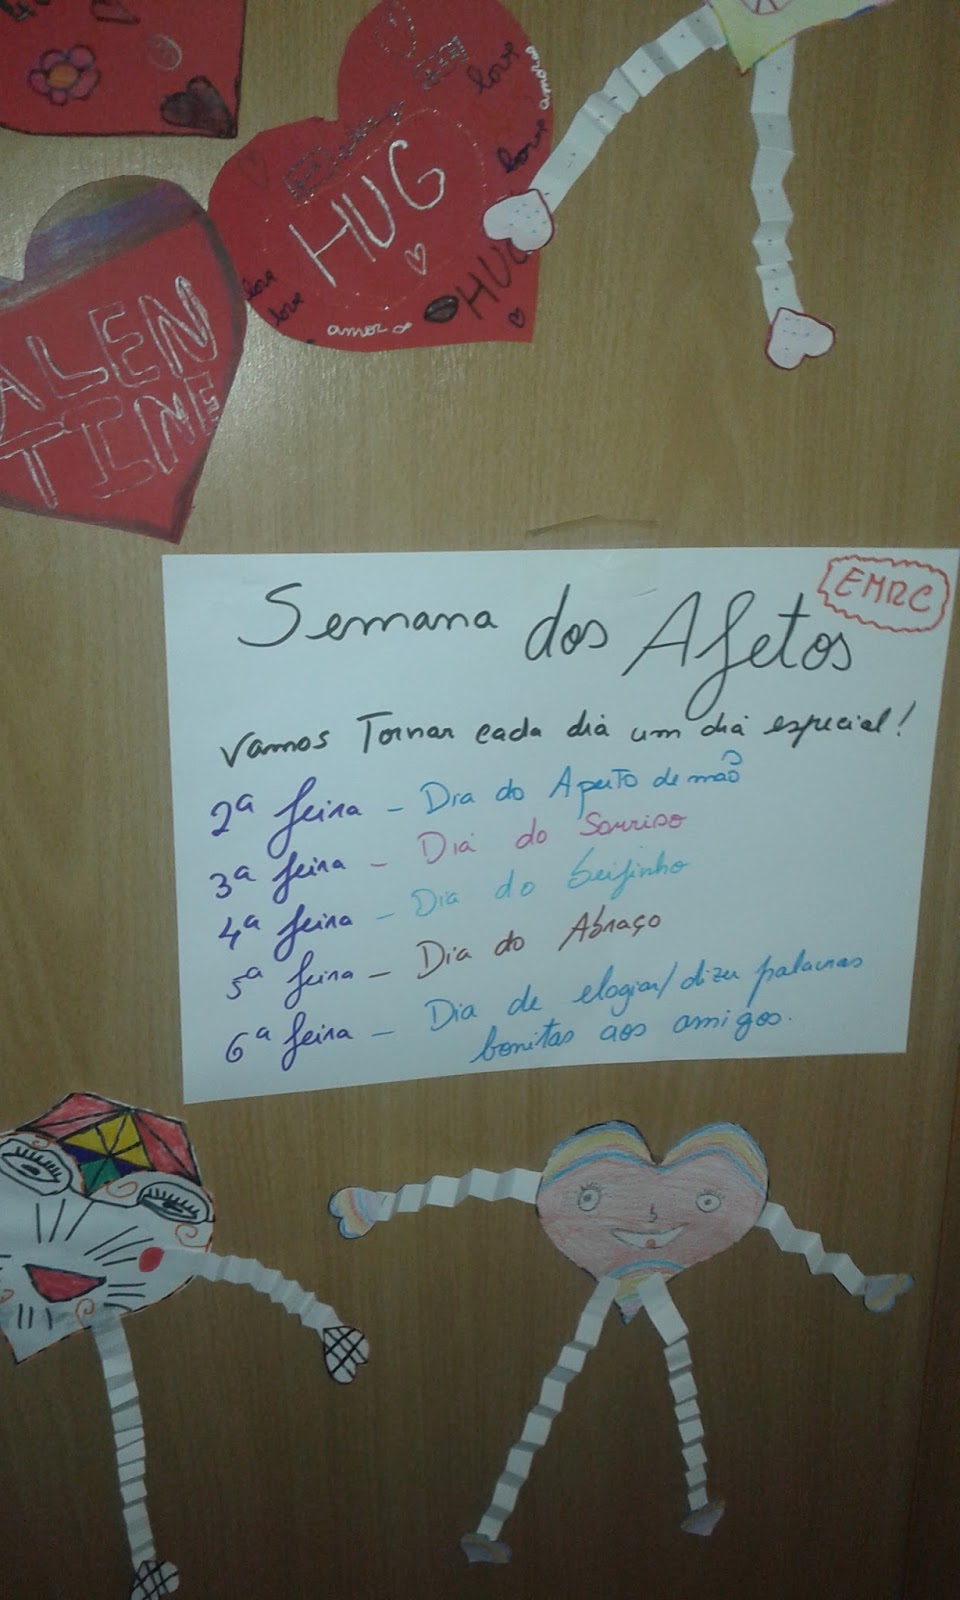 love
amoro
love
HUG
love
love
HUG
amor
ALEN
TINE
EMRC
Semana dos Afetos
Vamos Tornar cada dia um dia especial!
2ª feira - Dia do Aperto de mão
3ª feira - Dia do Sorriso
4ª feira - Dia do beijinho
5ª feira - Dia do Abraço
6ª feira - Dia de elogiar/dizer palavras
bonitas aos amigos.